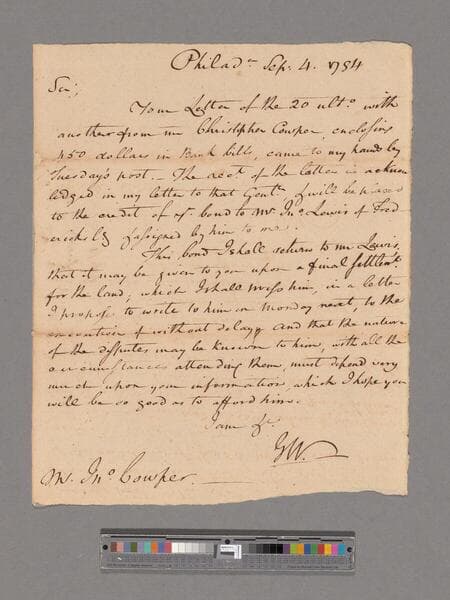 Philada. Sep: 4. 1794
Sir,
Your Letter of the 20 ulto. with
another from mr Christopher Cowper, enclosing
450 dollars in Bank bills, came to my hands by
Tuesday's post. — The rect of the latter is acknow
ledged in my letter to that Gentn. & will be passed
to the credit of yr. bond to Mr. Jno. Lewis of Fred
ericksbg & assigned by him to me.
This bond I shall return to mr Lewis,
that it may be given to you upon a final settlemt.
for the land; which I shall press him, in a letter
I propose to write to him on Monday next, to the
execution of without delay; and that the nature
of the disputes may be known to him, with all the
circumstances attending them, must depend very
much upon your information, which I hope you
will be so good as to afford him.
I am &c
GW.
Mr. Jno. Cowper.